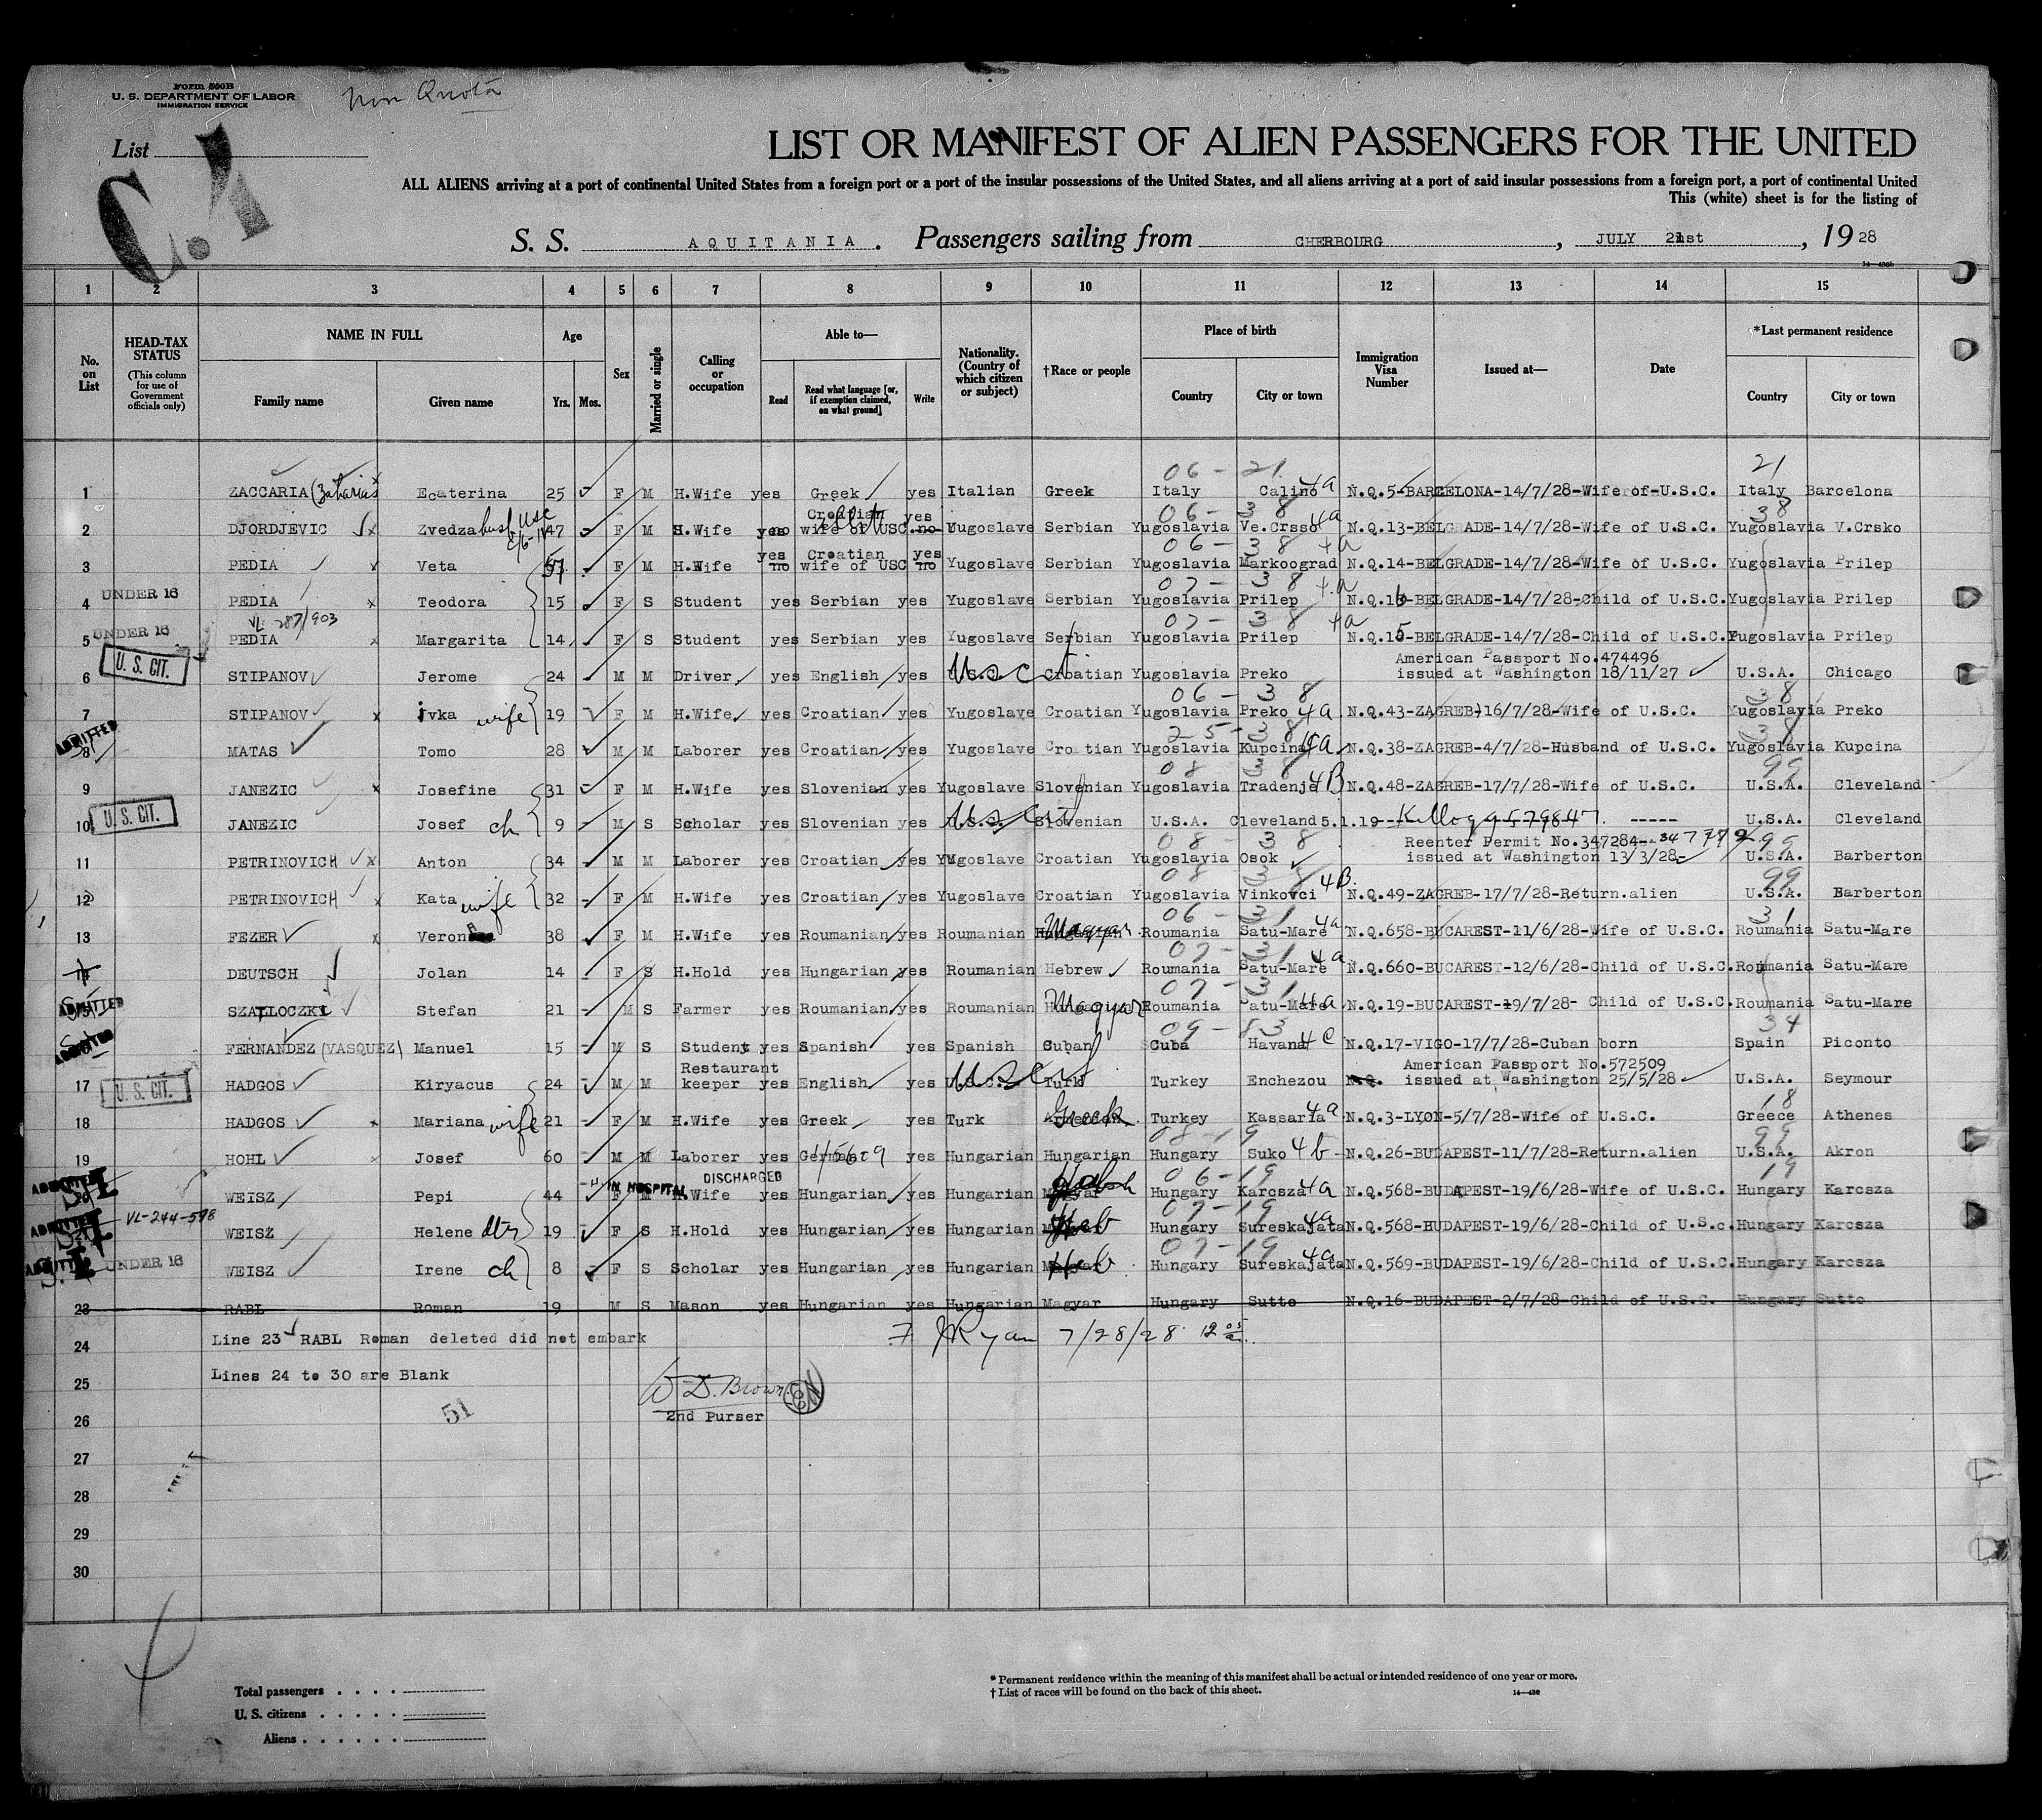 Form 500B
U. S. DEPARTMENT OF LABOR
IMMIGRATION SERVICE
Non Quota
List
C. 4
LIST OR MANIFEST OF ALIEN PASSENGERS FOR THE UNITED
ALL ALIENS arriving at a port of continental United States from a foreign port or a port of the insular possessions of the United States, and all aliens arriving at a port of said insular possessions from a foreign port, a port of continental United
This (white) sheet is for the listing of
S. S. AQUITANIA. Passengers sailing from CHERBOURG, JULY 21st, 1928
1 2 3 4 5 6 7 8 9 10 11 12 13 14 15
No. on List
HEAD-TAX STATUS (This column for use of Government officials only)
NAME IN FULL Family name Given name
Age Yrs. Mos.
Sex
Married or single
Calling or occupation
Able to— Read Read what language [or, if exemption claimed, on what ground] Write
Nationality. (Country of which citizen or subject)
†Race or people
Place of birth Country City or town
Immigration Visa Number
Issued at—
Date
*Last permanent residence Country City or town
06 - 21 21
1 ZACCARIA (Zaharias) Ecaterina 25 F M H.Wife yes Greek yes Italian Greek Italy Calino 4a N.Q.5-BARCELONA-14/7/28-Wife of-U.S.C. Italy Barcelona
Croatian yes 06 - 38 38
2 DJORDJEVIC Zvedza husb USC 47 F M H.Wife no wife of USC no Yugoslave Serbian Yugoslavia Ve.Crsso 4a N.Q.13-BELGRADE-14/7/28-Wife of U.S.C. Yugoslavia V.Crsko
yes Croatian yes 06 - 38 4a
3 PEDIA Veta F M H.Wife no wife of USC no Yugoslave Serbian Yugoslavia Markoograd N.Q.14-BELGRADE-14/7/28-Wife of U.S.C. Yugoslavia Prilep
07 - 38 4a
4 UNDER 16 PEDIA Teodora 15 F S Student yes Serbian yes Yugoslave Serbian Yugoslavia Prilep N.Q.16-BELGRADE-14/7/28-Child of U.S.C. Yugoslavia Prilep
VL 287/903 07 - 38 4a
5 UNDER 16 PEDIA Margarita 14 F S Student yes Serbian yes Yugoslave Serbian Yugoslavia Prilep N.Q.15-BELGRADE-14/7/28-Child of U.S.C. Yugoslavia Prilep
American Passport No.474496
6 U. S. CIT. STIPANOV Jerome 24 M M Driver yes English yes U.S.C. Croatian Yugoslavia Preko issued at Washington 18/11/27 U.S.A. Chicago
06 - 38 38
7 STIPANOV Ivka wife 19 F M H.Wife yes Croatian yes Yugoslave Croatian Yugoslavia Preko 4a N.Q.43-ZAGREB-16/7/28-Wife of U.S.C. Yugoslavia Preko
25 - 38 38
8 ADMITTED MATAS Tomo 28 M M Laborer yes Croatian yes Yugoslave Croatian Yugoslavia Kupcina 4a N.Q.38-ZAGREB-4/7/28-Husband of U.S.C. Yugoslavia Kupcina
08 38 99
9 JANEZIC Josefine 31 F M H.Wife yes Slovenian yes Yugoslave Slovenian Yugoslavia Tradenje 4B N.Q.48-ZAGREB-17/7/28-Wife of U.S.C. U.S.A. Cleveland
10 U. S. CIT. JANEZIC Josef ch 9 M S Scholar yes Slovenian yes U.S.C. Slovenian U.S.A. Cleveland 5.1.19 Kellogg 579847 ----- U.S.A. Cleveland
08 - 38 Reenter Permit No.347284 - 347772 99
11 PETRINOVICH Anton 34 M M Laborer yes Croatian yes Yugoslave Croatian Yugoslavia Osok issued at Washington 13/3/28- U.S.A. Barberton
08 38 4B 99
12 PETRINOVICH Kata wife 32 F M H.Wife yes Croatian yes Yugoslave Croatian Yugoslavia Vinkovci N.Q.49-ZAGREB-17/7/28-Return.alien U.S.A. Barberton
06 - 31 31
13 FEZER Verona 38 F M H.Wife yes Roumanian yes Roumanian Magyar Roumania Satu-Mare 4a N.Q.658-BUCAREST-11/6/28-Wife of U.S.C. Roumania Satu-Mare
07 - 31 4a
DEUTSCH Jolan 14 F S H.Hold yes Hungarian yes Roumanian Hebrew Roumania Satu-Mare N.Q.660-BUCAREST-12/6/28-Child of U.S.C. Roumania Satu-Mare
07 - 31
ADMITTED SZATLOCZKI Stefan 21 M S Farmer yes Roumanian yes Roumanian Magyar Roumania Satu-Mare 4a N.Q.19-BUCAREST-19/7/28- Child of U.S.C. Roumania Satu-Mare
09 - 83 34
ADMITTED FERNANDEZ (VASQUEZ) Manuel 15 M S Student yes Spanish yes Spanish Cuban Cuba Havana 4c N.Q.17-VIGO-17/7/28-Cuban born Spain Piconto
Restaurant American Passport No.572509
17 U. S. CIT. HADGOS Kiryacus 24 M M keeper yes English yes U.S.C. Turk Turkey Enchezou N.Q. issued at Washington 25/5/28 U.S.A. Seymour
18
18 HADGOS Mariana wife 21 F M H.Wife yes Greek yes Turk Greek Turkey Kassaria 4a N.Q.3-LYON-5/7/28-Wife of U.S.C. Greece Athenes
08 - 19 99
19 HOHL Josef 60 M M Laborer yes German yes Hungarian Hungarian Hungary Suko 4b N.Q.26-BUDAPEST-11/7/28-Return.alien U.S.A. Akron
IN HOSPITAL DISCHARGED 06 - 19 19
ADMITTED WEISZ Pepi 44 F M H.Wife yes Hungarian yes Hungarian Magyar Hungary Karcsza 4a N.Q.568-BUDAPEST-19/6/28-Wife of U.S.C. Hungary Karcsza
VL-244-598 07 - 19
ADMITTED WEISZ Helene dtr 19 F S H.Hold yes Hungarian yes Hungarian Heb Hungary Sureskajata 4a N.Q.568-BUDAPEST-19/6/28-Child of U.S.c. Hungary Karcsza
07 - 19
ADMITTED UNDER 16 WEISZ Irene ch 8 F S Scholar yes Hungarian yes Hungarian Heb Hungary Sureskajata 4a N.Q.569-BUDAPEST-19/6/28-Child of U.S.C. Hungary Karcsza
23 RABL Roman 19 M S Mason yes Hungarian yes Hungarian Magyar Hungary Sutto N.Q.16-BUDAPEST-2/7/28-Child of U.S.C. Hungary Sutto
24 Line 23 RABL Roman deleted did not embark JRyan 7/28/28
25 Lines 24 to 30 are Blank
W D. Brown
26 51 2nd Purser
27
28
29
30
Total passengers . . . .
U. S. citizens . . . . .
Aliens . . . . . .
* Permanent residence within the meaning of this manifest shall be actual or intended residence of one year or more.
† List of races will be found on the back of this sheet.